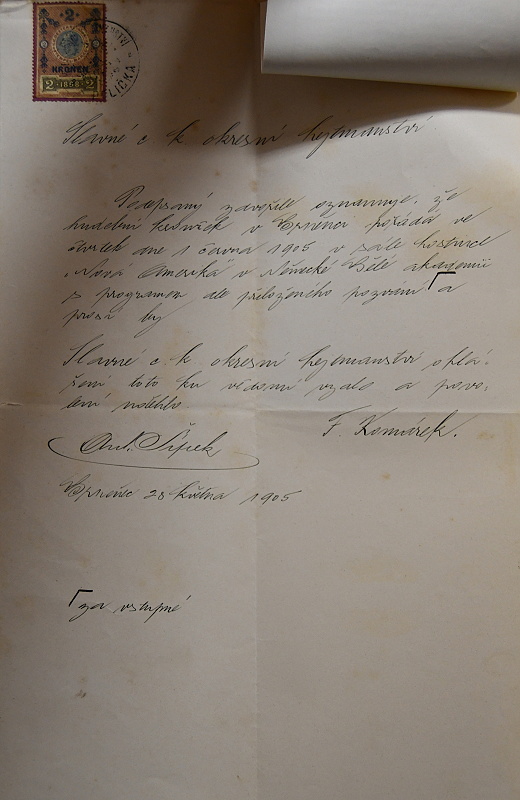 2
KRONEN
2 1898 2
LIČKA
Slavné c k okresní hejtmanství
Podepsaný zdvořile oznamuje, že
hudební kroužek v Brněnci pořádá ve
čtvrtek dne 1 června 1905 v sále hostince
„Nová Amerika" v Německé Bělé akademii
s programem dle přiloženého pozvání ┌ a
prosí by
Slavné c k okresní hejtmanství ohlá-
šení toto ku vědomí vzalo a povo-
lení udělilo.
F. Komárek.
Ant. Šípek
Brněnec 28 května 1905
┌ za vstupné